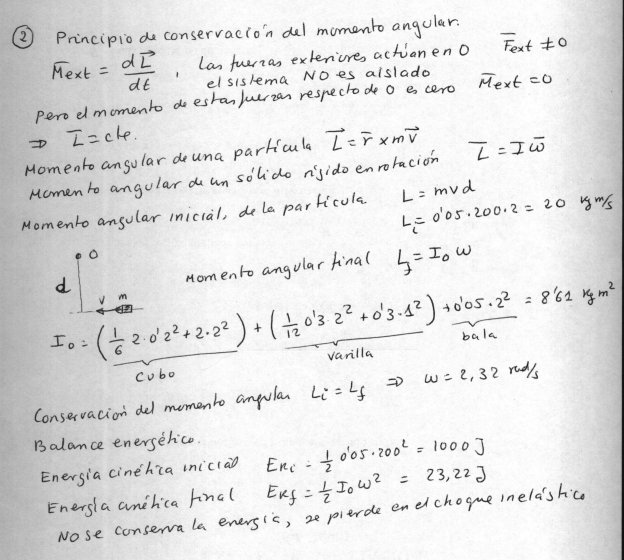 ② Principio de conservación del momento angular.
M̄ext = dL⃗/dt , Las fuerzas exteriores actúan en O F̄ext ≠ 0
el sistema NO es aislado
Pero el momento de estas fuerzas respecto de O es cero M̄ext = 0
⇒ L̄ = cte.
Momento angular de una partícula L⃗ = r̄ × m v⃗
Momento angular de un sólido rígido en rotación L̄ = I ω̄
Momento angular inicial, de la partícula L = m v d
Li = 0'05 · 200 · 2 = 20 kg m/s
O
d
v m
Momento angular final Lf = I₀ ω
I₀ = (1/6 2 · 0'2² + 2 · 2²) + (1/12 0'3 · 2² + 0'3 · 1²) + 0'05 · 2² = 8'61 kg m²
cubo varilla bala
Conservación del momento angular Li = Lf ⇒ ω = 2,32 rad/s
Balance energético.
Energía cinética inicial Eki = 1/2 0'05 · 200² = 1000 J
Energía cinética final Ekf = 1/2 I₀ ω² = 23,22 J
No se conserva la energía, se pierde en el choque inelástico